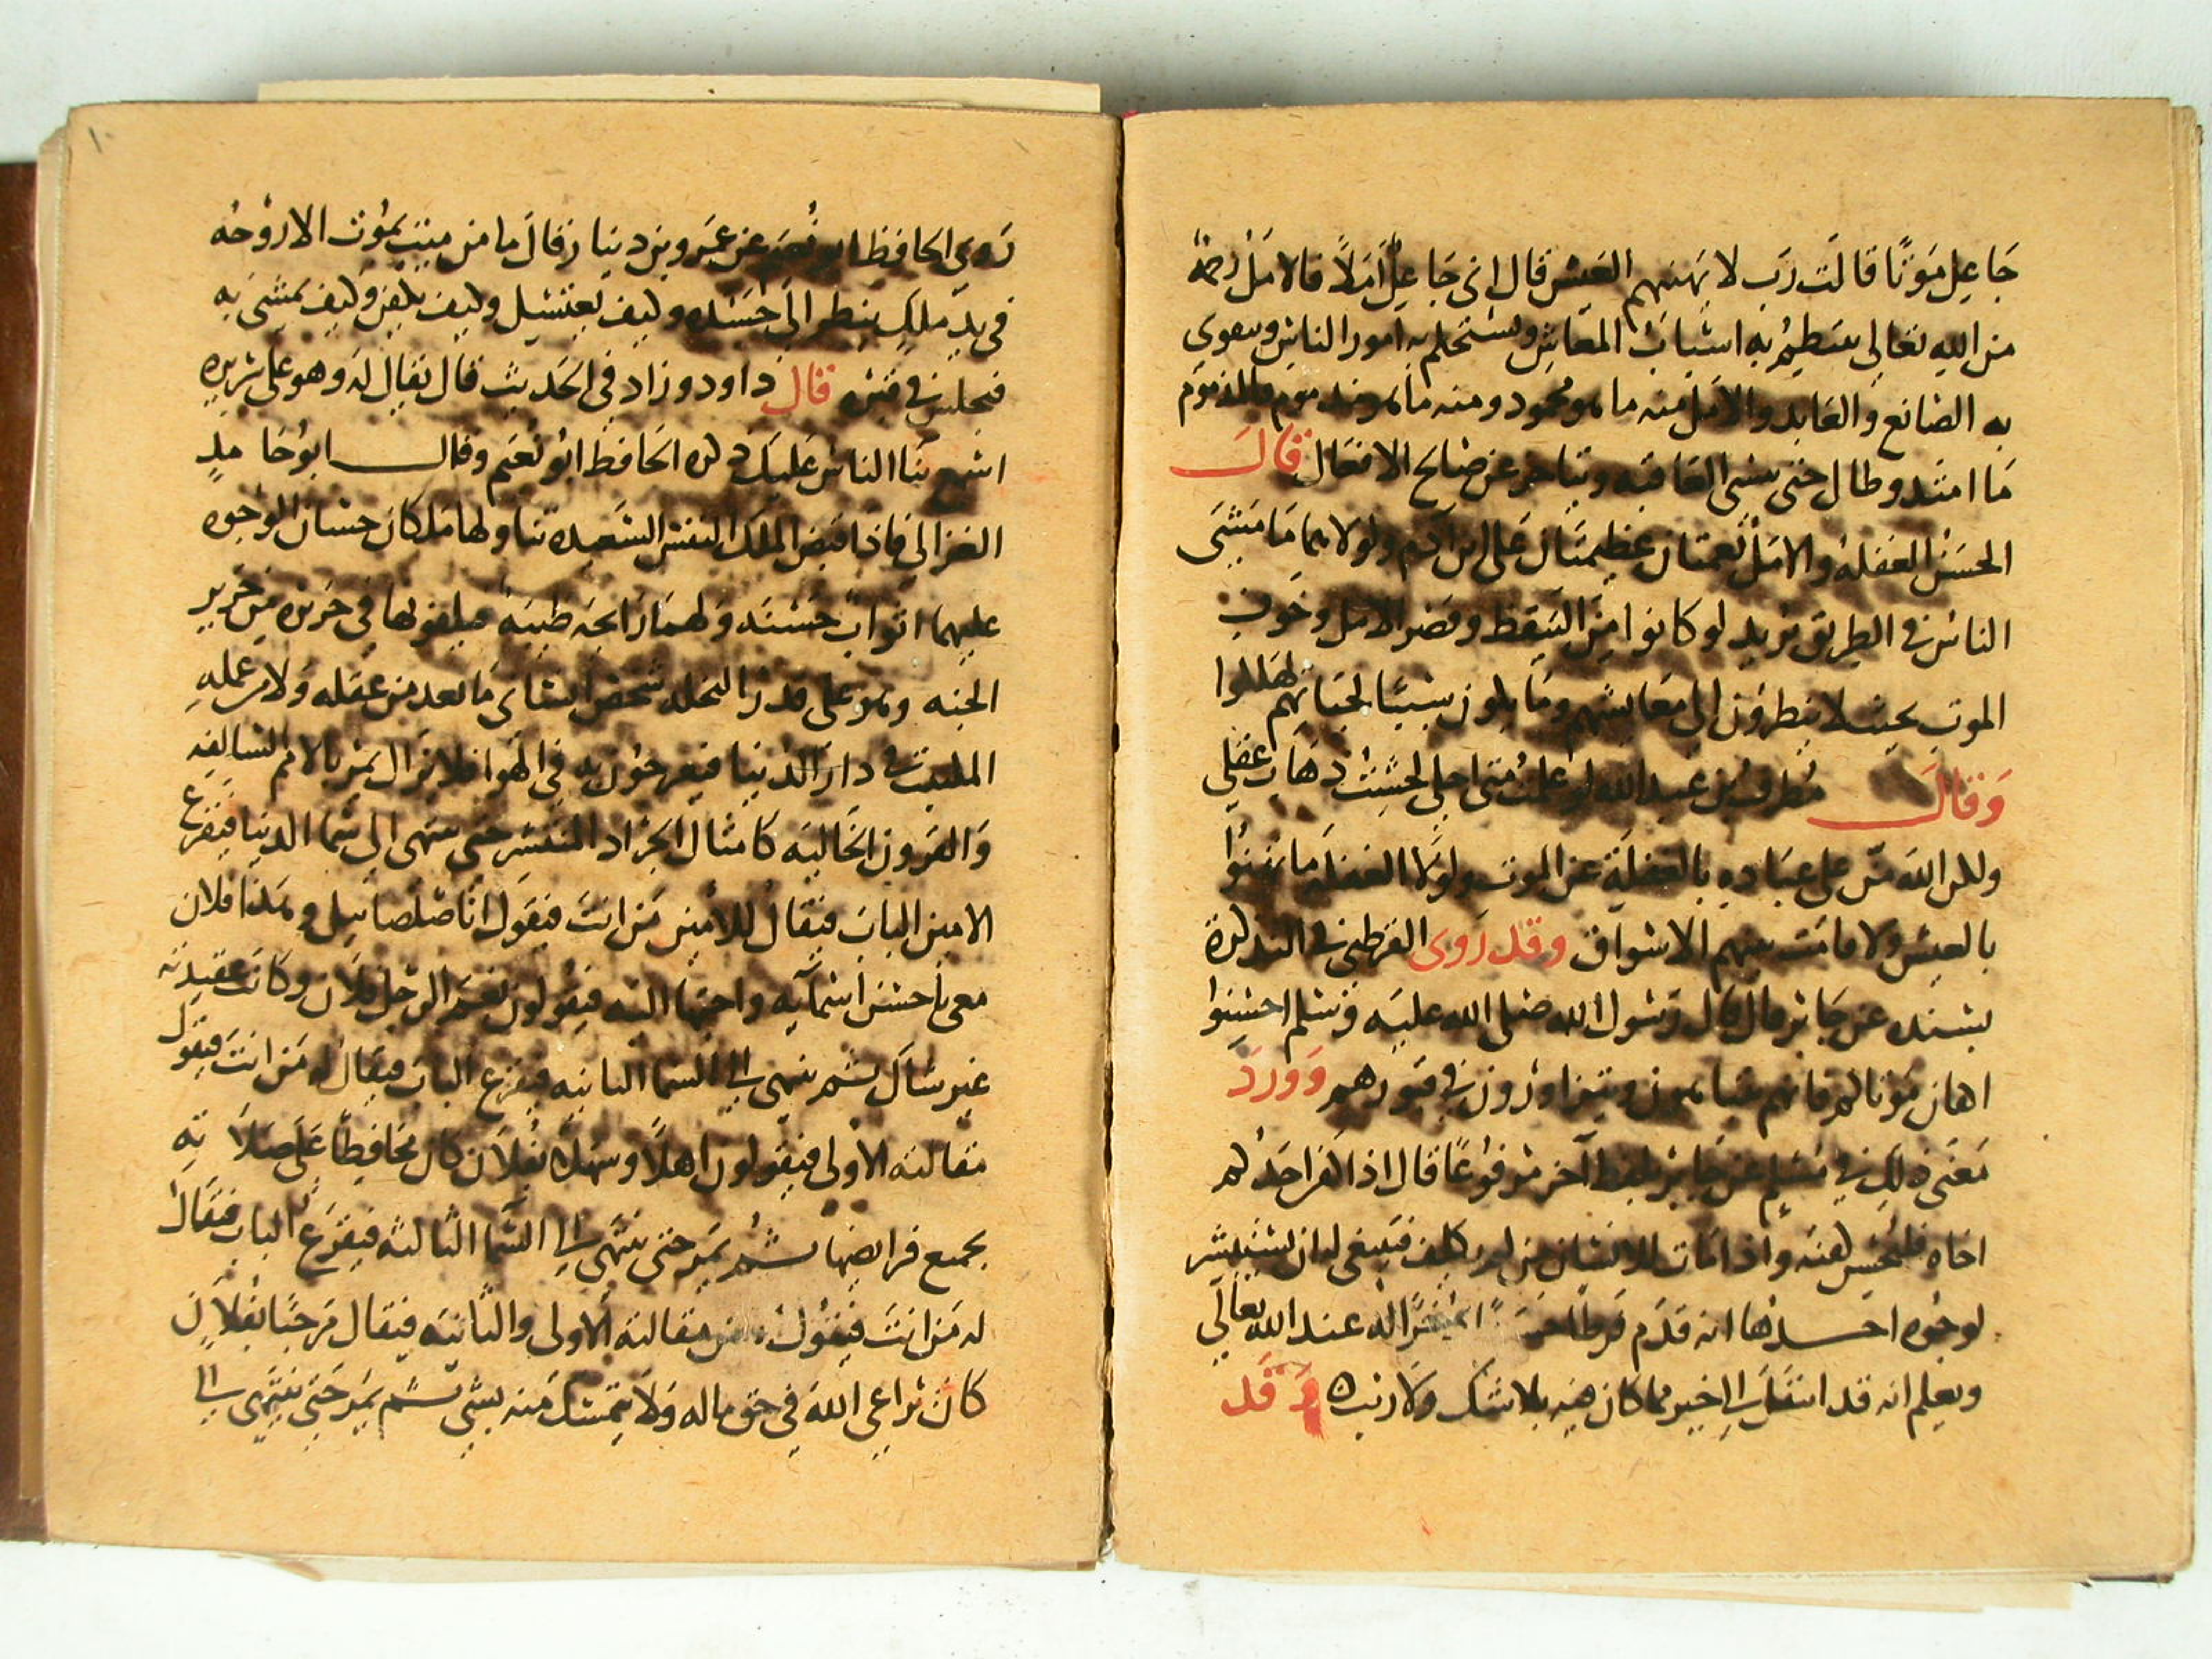 جاعل موتا قالت رب لا يهنيهم العيش قال انى جاعل املا فالامل رحمة
من الله تعالى ينتظم به اسباب المعاش ويستحكم به امور الناس ويتقوى
به الصانع والعابد والامل منه ما هو محمود ومنه ما هو مذموم فالمذموم
ما امتد وطال حتى ينسى العاقبه ويتاخر عن صالح الافعال قال
الحسن الغفلة والامل نعمتان عظيمتان على ابن ادم ولولاهما ما مشى
الناس في الطريق يريد لو كانوا من التيقظ وقصر الامل وخوف
الموت بحيث لا ينظرون الى معايشهم وما يكون سببا لحياتهم لهلكوا
وقال مطرف بن عبد الله لو علمت متى اجلى لخشيت ذهاب عقلى
ولكن الله من على عباده بالغفلة عن الموت ولولا الغفلة ما تهنوا
بالعيش ولا قامت بينهم الاسواق وقد روى القرطبى في التذكرة
بسنده عن جابر قال قال رسول الله صلى الله عليه وسلم احسنوا
اكفان موتاكم فانهم يتباهون ويتزاورون في قبورهم وورد
معنى ذلك في مسلم عن جابر بلفظ آخر مرفوعا قال اذا كفن احدكم
اخاه فليحسن كفنه واذا مات للانسان من لم يكلف فينبغى له ان يستبشر
لوجوه احدها انه قدم فرطا له عند الله تعالى
ويعلم انه قد انتقل الى خير مما كان فيه بلا شك ولا ريب وقد
١٠
روى الحافظ ابو نعيم عن عمرو بن دينار قال ما من ميت يموت الا روحه
في يد ملك ينظر الى جسده وكيف يغتسل وكيف يكفن وكيف يمشى به
فيجلس في قبره قال داود وزاد في الحديث قال يقال له وهو على سريره
اسمع ثنا الناس عليك ذكره الحافظ ابو نعيم وقال ابو حامد
الغزالى فاذا قبض الملك النفس السعيده تناولها ملكان حسان الوجوه
عليهما اثواب حسنه ولهما رائحه طيبه فيلفونها في حريره من حرير
الجنه وهو على قدر النحله شخص انسانى ما فقد من عقله ولا من عمله
المكتسب في دار الدنيا فيعرجون به في الهوا فلا يزال يمر بالامم السالفه
والقرون الخاليه كامثال الجراد المنتشر حتى ينتهى الى سما الدنيا فيقرع
الامين الباب فيقال للامين من انت فيقول انا صلصائيل وهذا فلان
معى باحسن اسمآيه واحبها اليه فيقولون نعم الرجل فلان وكانت عقيدته
غير شاك ثم ينتهى الى السما الثانيه فيقرع الباب فيقال له من انت فيقول
مقالته الاولى فيقولون اهلا وسهلا بفلان كان محافظا على صلاته
بجميع فرائضها ثم يمر حتى ينتهى الى السما الثالثه فيقرع الباب فيقال
له من انت فيقول مقالته الاولى والثانيه فيقال مرحبا بفلان
كان يراعى الله في حق ماله ولا يتمسك منه بشى ثم يمر حتى ينتهى الى